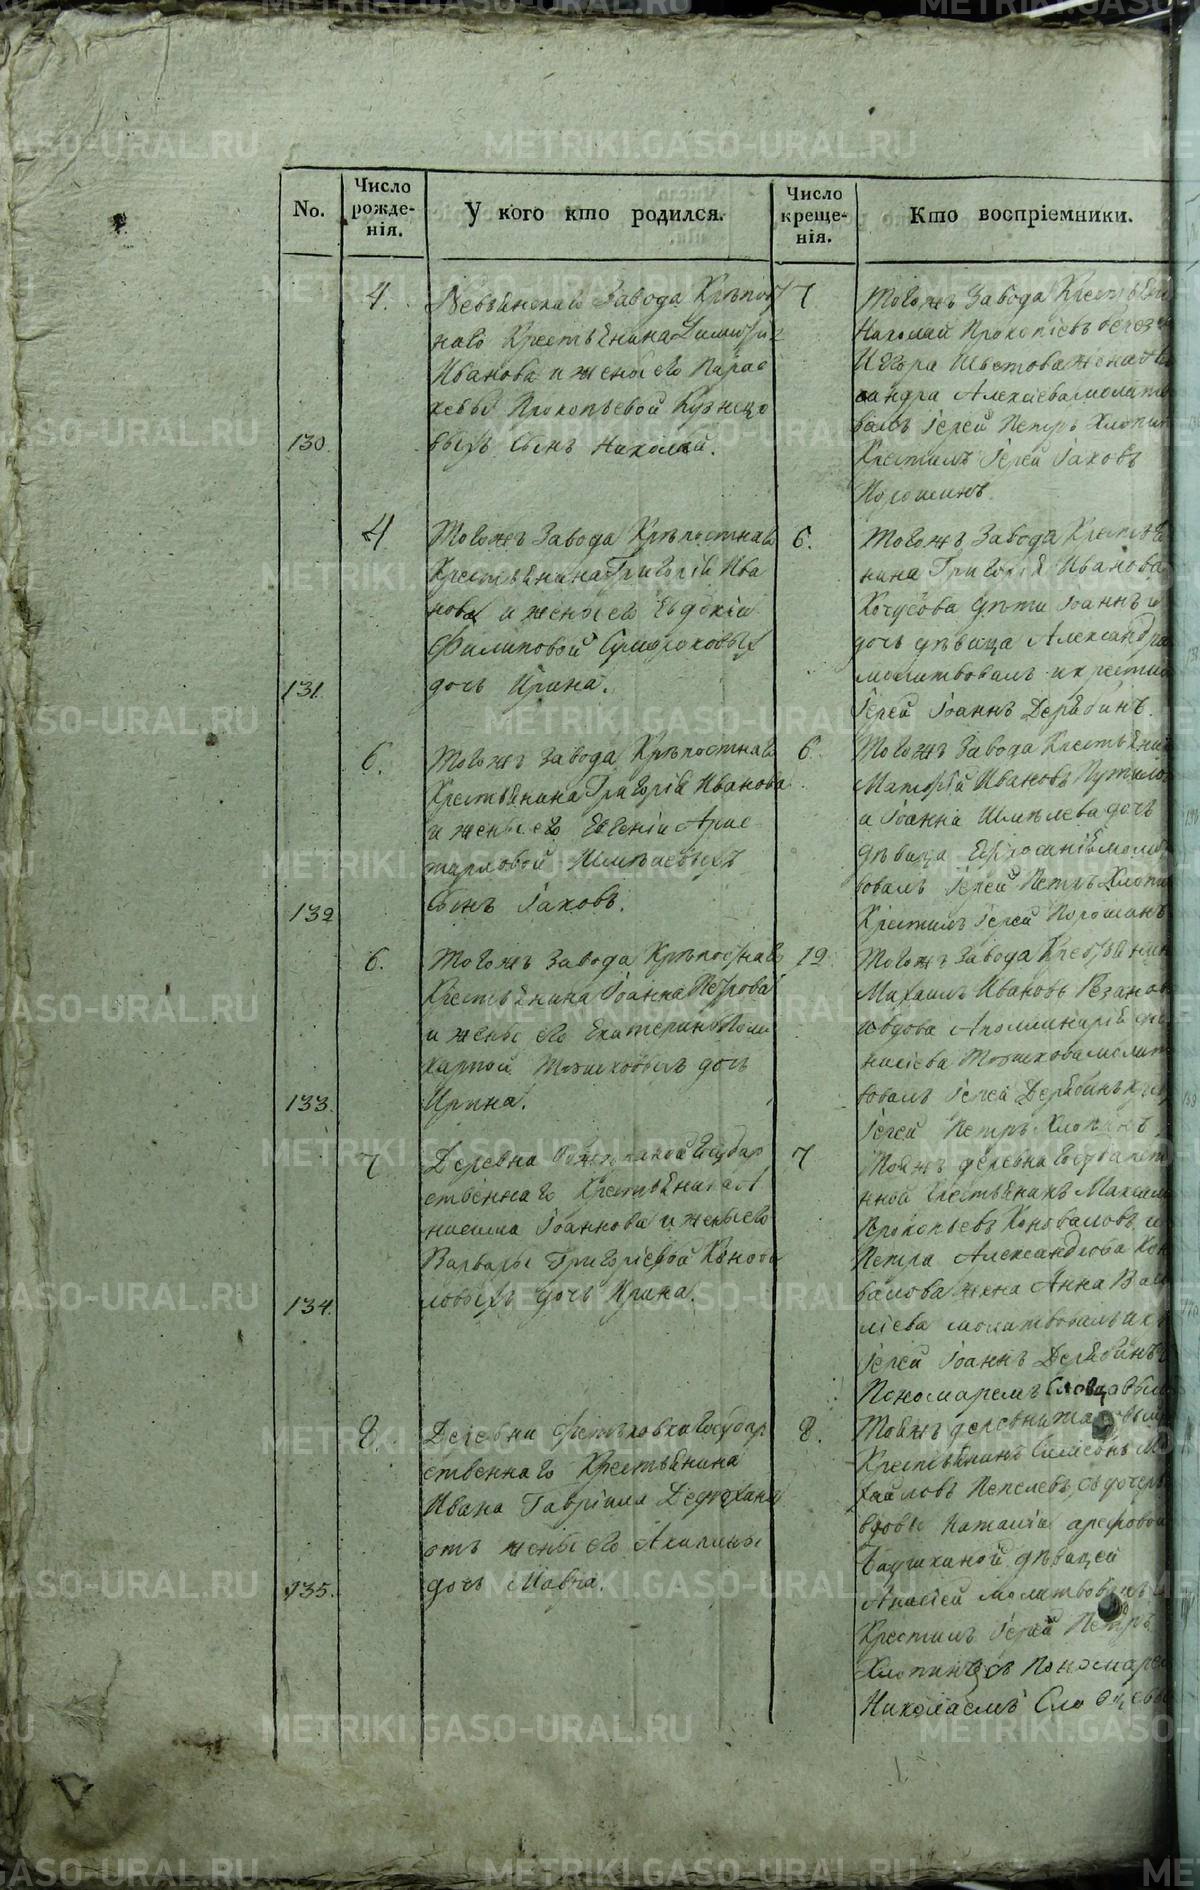 No.
Число рожде-нія.
У кого кто родился.
Число креще-нія.
Кто воспріемники.
130.
4.
Невьянскаго Завода Крѣпост
наго Крестьянина Димитрія
Иванова и жены его Парас
кевы Прокопьевой Кузнецо
выхъ Сынъ Николай.
7
Тогожъ Завода Крестьяни
Николай Прокопіевъ
Шестова жена Алек
сандра Алексіева молитво
валъ Іерей Петръ Хлопин
Крестилъ Іерей Іаковъ
Порошинъ.
131.
4
Тогожъ Завода Крѣпостнаго
Крестьянина Григорія Ива
нова и жены его Евдокіи
Филиповой
дочь Ирина.
6.
Тогожъ Завода Крестья
нина Григорія Иванова
дѣти Іоаннъ и
дочь дѣвица Александра
молитвовалъ и крестил
Іерей Іоаннъ Дерябинъ.
132
6.
Тогожъ Завода Крѣпостнаго
Крестьянина Григорія Иванова
и жены его Евгеніи Арис
тарховой Шмелевыхъ
Сынъ Іаковъ.
6.
Тогожъ Завода Крестьянин
Матфій Ивановъ Путилов
и Іоанна Шмелева дочь
дѣвица молит
вовалъ Іерей Петръ Хлопин
Крестилъ Іерей Порошинъ
133.
6.
Тогожъ Завода Крѣпостнаго
Крестьянина Іоанна Петрова
и жены его Екатерины Поли
карпой дочь
Ирина.
19
Тогожъ Завода Крестьянин
Михаилъ Ивановъ Резанов
и вдова Аполлинарія
молит
вовалъ Іерей Дерябинъ крес
Іерей Петръ Хлопинъ
134.
7
Деревни Государ
ственнаго Крестьянина
Іоаннова и жены его
Варвары Григоріевой Конова
ловыхъ дочь Ирина.
7
Тояжъ деревни Государстве
нной Крестьянинъ Максим
Прокопьевъ Коноваловъ и
Петра Александрова Коно
валова жена Анна Васи
ліева молитвовалъ и кр
Іерей Іоаннъ Дерябинъ
Пономаремъ Словцовым
135.
8
Деревни Государ
ственнаго Крестьянина
Ивана Гавріила
отъ жены его Акилины
дочь Мавра.
8.
Тояжъ деревни
Крестьянинъ Симеонъ Ми
хайловъ Пепелевъ, съ дочерью
вдовы Наталіи
дѣвицей
молитвовалъ и
Крестилъ Іерей Петръ
Хлопинъ съ Пономаре
Николаемъ Словцовы
METRIKI.GASO-URAL.RU